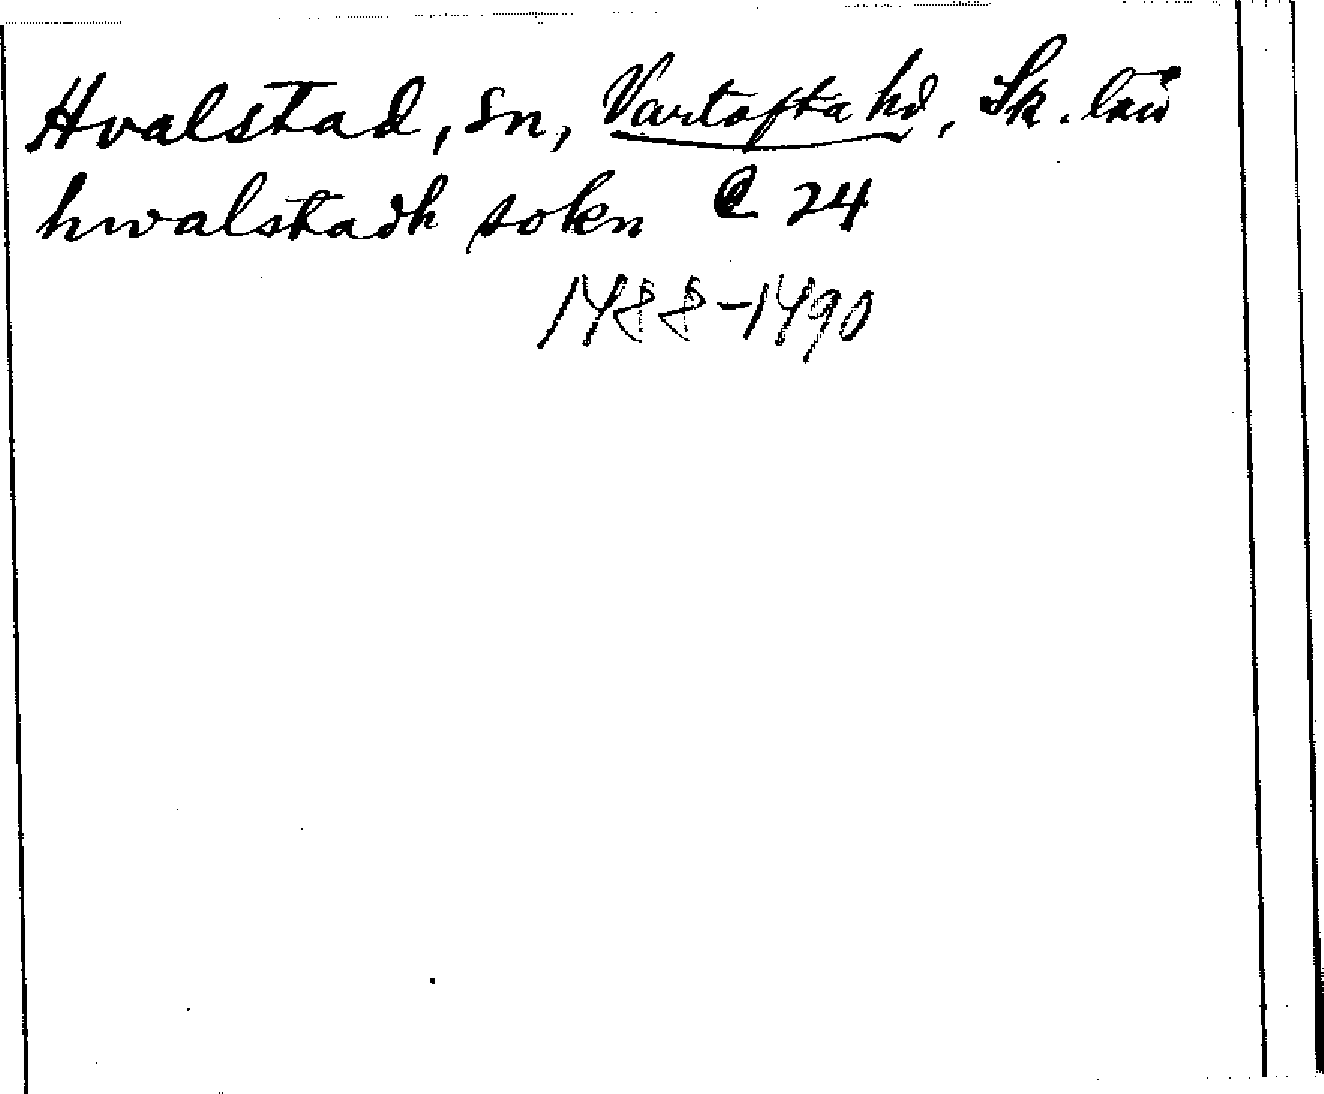 Hvalstad, sn, Vartofta hd, Sk. län
hwalstadh sokn C 24
1488-1490